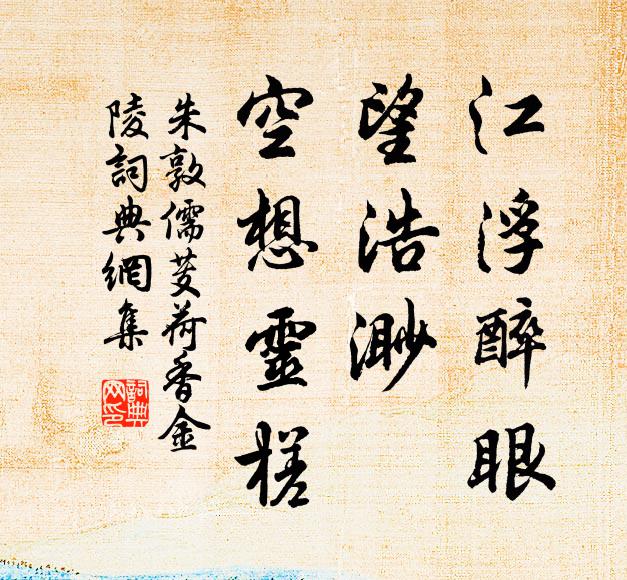 江浮醉眼
望浩渺
空想靈槎
朱敦儒芰荷香金
陵詞典網集
詞典
网印